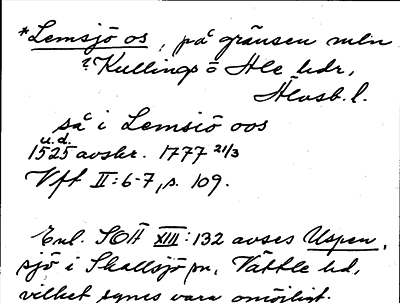 *Lemsjö os, på gränsen mln
? Kullings ö Ale hdr,
Älvsb. l.
så i Lemsiö oos
u.d.
1525 avskr. 1777 21/3
Vft II:6-7, s. 109.
Enl. SOÄ XIII:132 avses Uspen,
sjö i Skallsjö sn, Vättle hd,
vilket synes vara omöjligt.